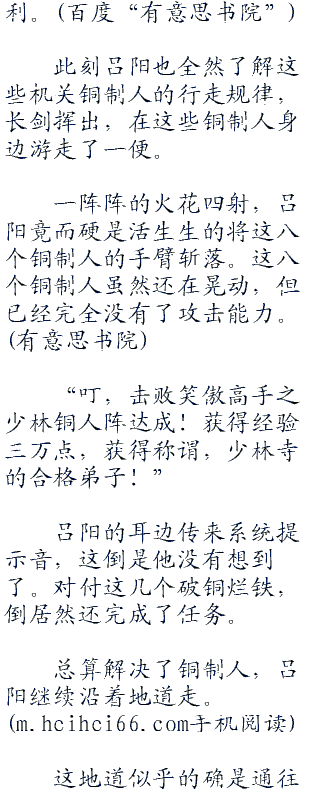 利。(百度“有意思书院”)
此刻吕阳也全然了解这
些机关铜制人的行走规律，
长剑挥出，在这些铜制人身
边游走了一便。
一阵阵的火花四射，吕
阳竟而硬是活生生的将这八
个铜制人的手臂斩落。这八
个铜制人虽然还在晃动，但
已经完全没有了攻击能力。
(有意思书院)
“叮，击败笑傲高手之
少林铜人阵达成！获得经验
三万点，获得称谓，少林寺
的合格弟子！”
吕阳的耳边传来系统提
示音，这倒是他没有想到
了。对付这几个破铜烂铁，
倒居然还完成了任务。
总算解决了铜制人，吕
阳继续沿着地道走。
(m.hcihci66.com手机阅读)
这地道似乎的确是通往